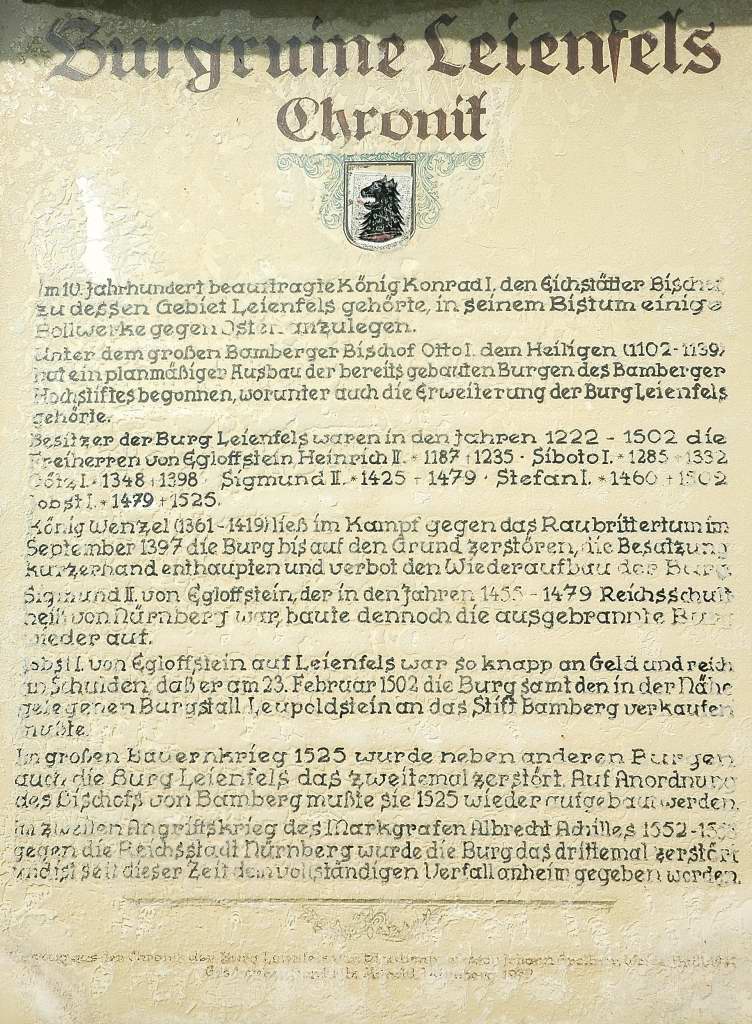 Burgruine Leienfels
Chronik
Im 10. Jahrhundert beauftragte König Konrad I. den Eichstätter Bischof
zu dessen Gebiet Leienfels gehörte, in seinem Bistum einige
Bollwerke gegen Osten anzulegen.
Unter dem großen Bamberger Bischof Otto I. dem Heiligen (1102-1139)
hat ein planmäßiger Ausbau der bereits gebauten Burgen des Bamberger
Hochstiftes begonnen, worunter auch die Erweiterung der Burg Leienfels
gehörte.
Besitzer der Burg Leienfels waren in den Jahren 1222 - 1502 die
Freiherren von Egloffstein, Heinrich II. * 1187 † 1235 · Siboto I. * 1285 † 1332
Götz I. * 1348 † 1398 Sigmund II. * 1425 † 1479 · Stefan I. * 1460 † 1502
Jobst I. * 1479 † 1525.
König Wenzel (1361-1419) ließ im Kampf gegen das Raubrittertum im
September 1397 die Burg bis auf den Grund zerstören, die Besatzung
kurzerhand enthaupten und verbot den Wiederaufbau der Burg.
Sigmund II. von Egloffstein, der in den Jahren 1455 - 1479 Reichsschult
heiß von Nürnberg war, baute dennoch die ausgebrannte Burg
wieder auf.
Jobst I. von Egloffstein auf Leienfels war so knapp an Geld und reich
an Schulden, daß er am 23. Februar 1502 die Burg samt den in der Nähe
gelegenen Burgstall Leupoldstein an das Stift Bamberg verkaufen
mußte.
Im großen Bauernkrieg 1525 wurde neben anderen Burgen
auch die Burg Leienfels das zweitemal zerstört. Auf Anordnung
des Bischofs von Bamberg mußte sie 1525 wieder aufgebaut werden.
Im zweiten Angriffskrieg des Markgrafen Albrecht Achilles 1552-
gegen die Reichsstadt Nürnberg wurde die Burg das drittemal zerstört
und ist seit dieser Zeit dem vollständigen Verfall anheim gegeben worden.
aus der Chronik der Burg Leienfels